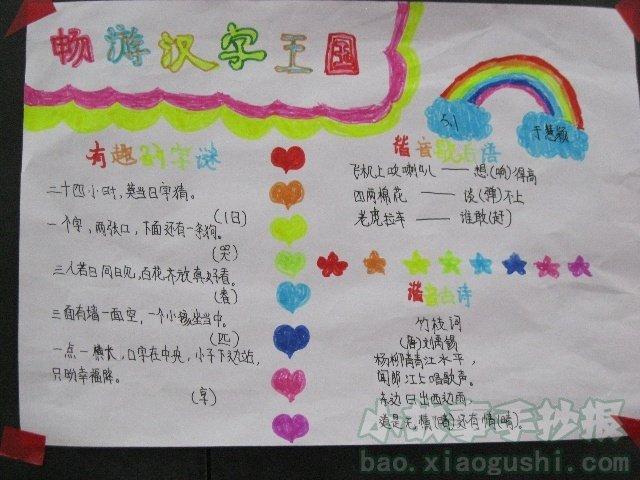 畅游汉字王国
5.1
于慧颖
有趣的字谜
二十四小时,莫当日字猜。
(旧)
一个字,两张口,下面还有一条狗。
(哭)
三人若日间日见,百花齐放真好看。
(春)
三面有墙一面空,一个小孩坐当中。
(匹)
一点一横长,口字在中央,小子下边站,
只盼幸福降。
(享)
谐音歇后语
飞机上吹喇叭——想(响)得高
四两棉花——谈(弹)不上
老虎拉车——谁敢(赶)
谐音古诗
竹枝词
(唐)刘禹锡
杨柳青青江水平,
闻郎江上唱歌声。
东边日出西边雨,
道是无情(晴)还有情(晴)。
小故事手抄报
bao.xiaogushi.com